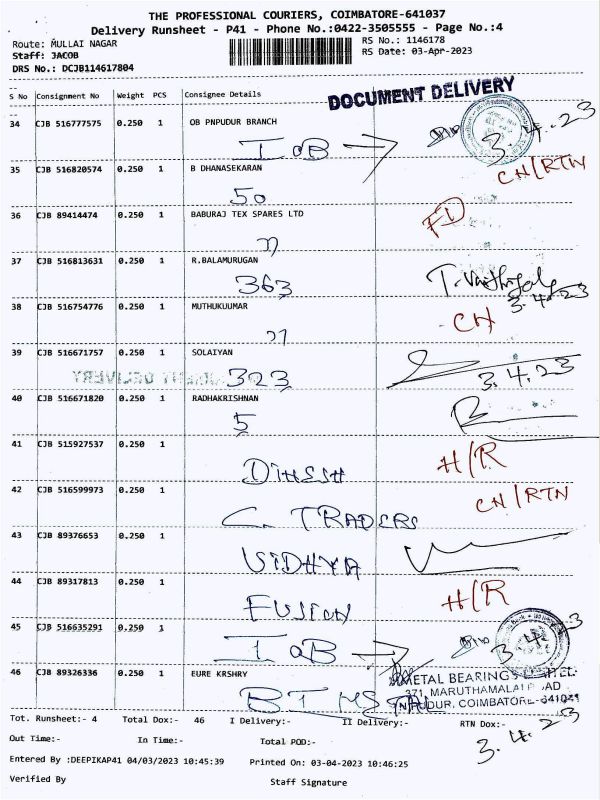 THE PROFESSIONAL COURIERS, COIMBATORE-641037
Delivery Runsheet - P41 - Phone No.:0422-3505555 - Page No.:4
Route: MULLAI NAGAR RS No.: 1146178
Staff: JACOB RS Date: 03-Apr-2023
DRS No.: DCJB114617804
S No Consignment No Weight PCS Consignee Details
DOCUMENT DELIVERY
34 CJB 516777575 0.250 1 OB PNPUDUR BRANCH
IOB 3.4.23
35 CJB 516820574 0.250 1 B DHANASEKARAN CH/RTN
50
36 CJB 89414474 0.250 1 BABURAJ TEX SPARES LTD FD
37 CJB 516813631 0.250 1 R.BALAMURUGAN
363 3.4.23
38 CJB 516754776 0.250 1 MUTHUKUUMAR CH
39 CJB 516671757 0.250 1 SOLAIYAN
323 3.4.23
40 CJB 516671820 0.250 1 RADHAKRISHNAN
5
41 CJB 515927537 0.250 1 H/R
42 CJB 516599973 0.250 1 CH/RTN
C. TRADERS
43 CJB 89376653 0.250 1
VIDHYA
44 CJB 89317813 0.250 1 H/R
FUSION
45 CJB 516635291 0.250 1
IOB 3.4.23
46 CJB 89326336 0.250 1 EURE KRSHRY
METAL BEARINGS
371, MARUTHAMALAI ROAD
COIMBATORE-641041
Tot. Runsheet:- 4 Total Dox:- 46 I Delivery:- II Delivery:- RTN Dox:-
3.4.23
Out Time:- In Time:- Total POD:-
Entered By :DEEPIKAP41 04/03/2023 10:45:39 Printed On: 03-04-2023 10:46:25
Verified By Staff Signature